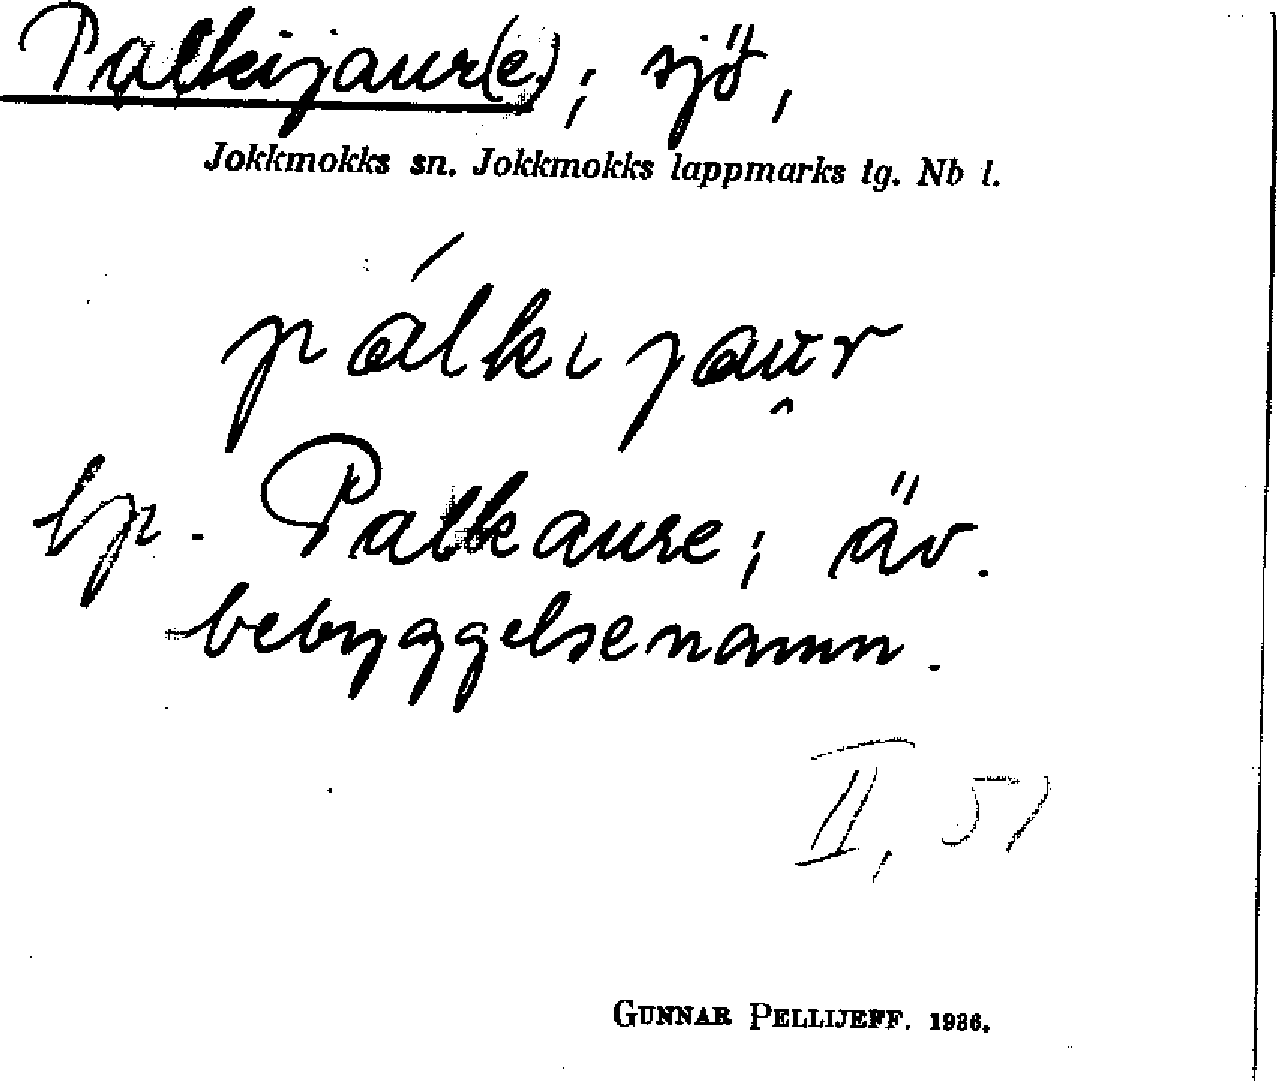 Palkijaur(e), sjö,
Jokkmokks sn. Jokkmokks lappmarks tg. Nb l.
pálkɩjau̯r
hp. Palkaure; äv.
bebyggelsenamn.
II, 51
GUNNAR PELLIJEFF. 1936.